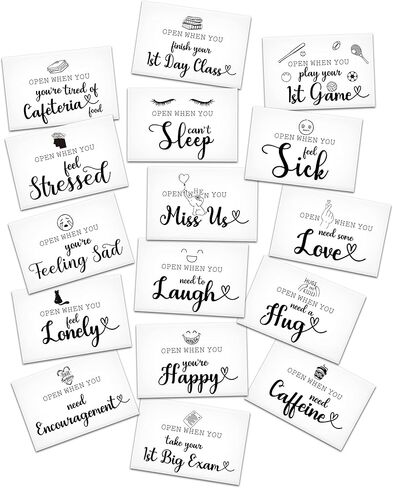 OPEN WHEN YOU
finish your
1st Day Class
OPEN WHEN YOU
you're tired of
Cafeteria food
OPEN WHEN YOU
play your
1st Game
OPEN WHEN YOU
can't
Sleep
OPEN WHEN YOU
feel
Stressed
OPEN WHEN YOU
feel
Sick
OPEN WHEN YOU
Miss Us
OPEN WHEN YOU
need some
Love
OPEN WHEN YOU
you're
Feeling Sad
OPEN WHEN YOU
need to
Laugh
OPEN WHEN YOU
need a
Hug
OPEN WHEN YOU
feel
Lonely
OPEN WHEN YOU
you're
Happy
OPEN WHEN YOU
need
Caffeine
OPEN WHEN YOU
need
Encouragement
OPEN WHEN YOU
take your
1st Big Exam